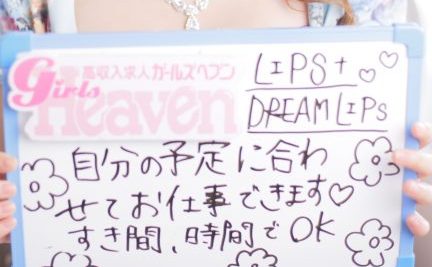 高収入求人ガールズヘブン
Girls
Heaven
LIPS+
DREAMLIPS
自分の予定に合わ
せてお仕事できます♡
すき間、時間でOK